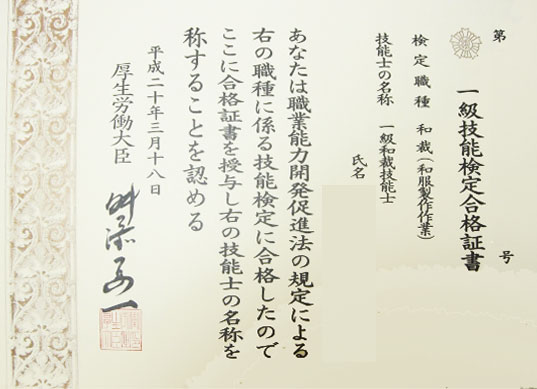 第 号
一級技能検定合格証書
検定職種 和裁(和服製作作業)
技能士の名称 一級和裁技能士
氏名
あなたは職業能力開発促進法の規定による
右の職種に係る技能検定に合格したので
ここに合格証書を授与し右の技能士の名称を
称することを認める
平成二十年三月十八日
厚生労働大臣 舛添要一